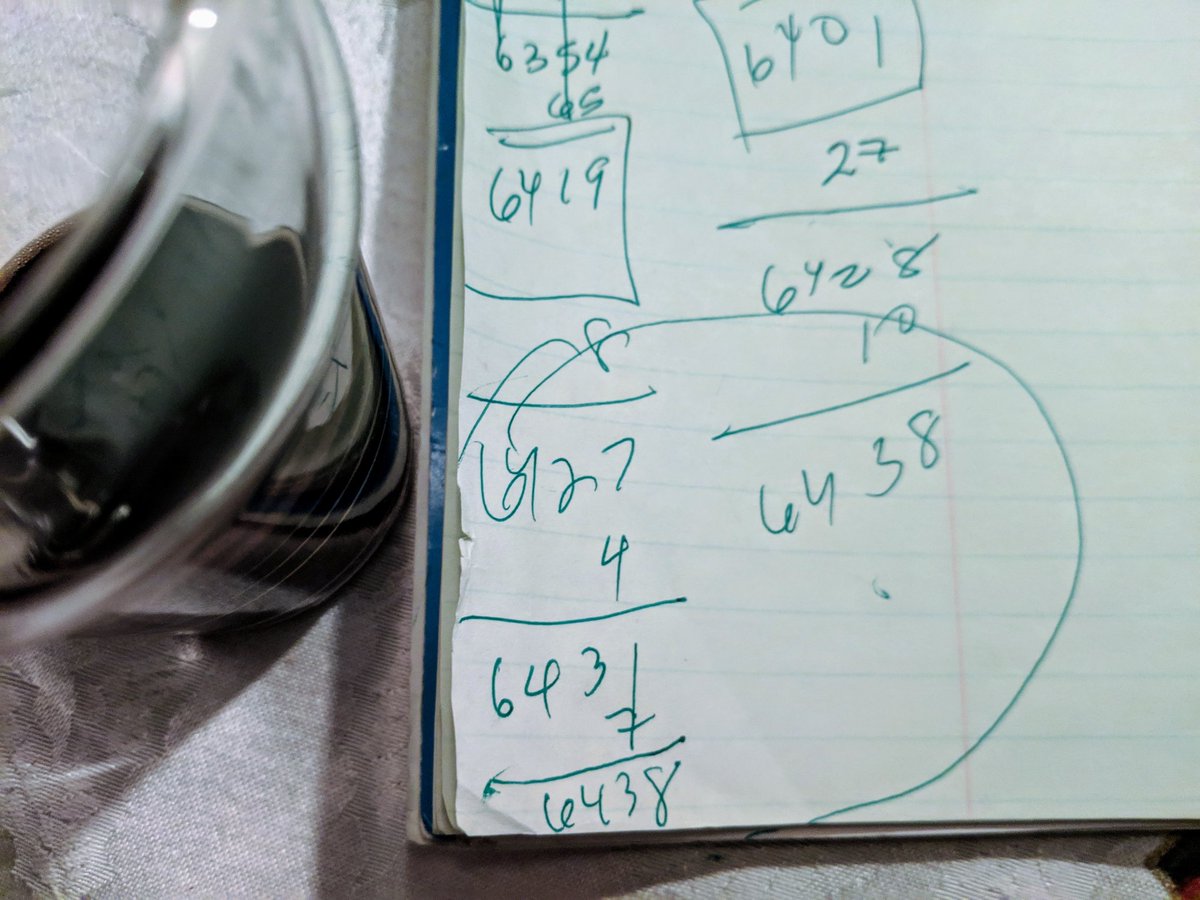 6354
65
6419
8
6427
4
6431
7
6438
6401
27
6428
10
6438